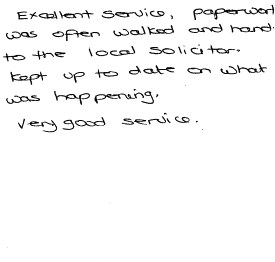 Excellent service, paperwork
was often walked and hand
to the local solicitor.
Kept up to date on what
was happening.
Very good service.